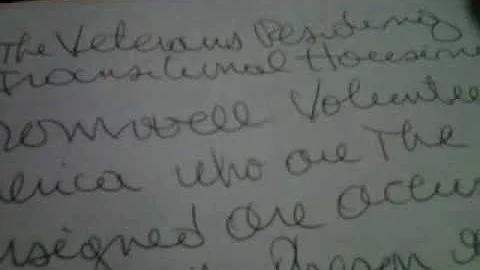 The Veterans Residing
Transitional Housing
Volunte
erica who are The
signed are occu